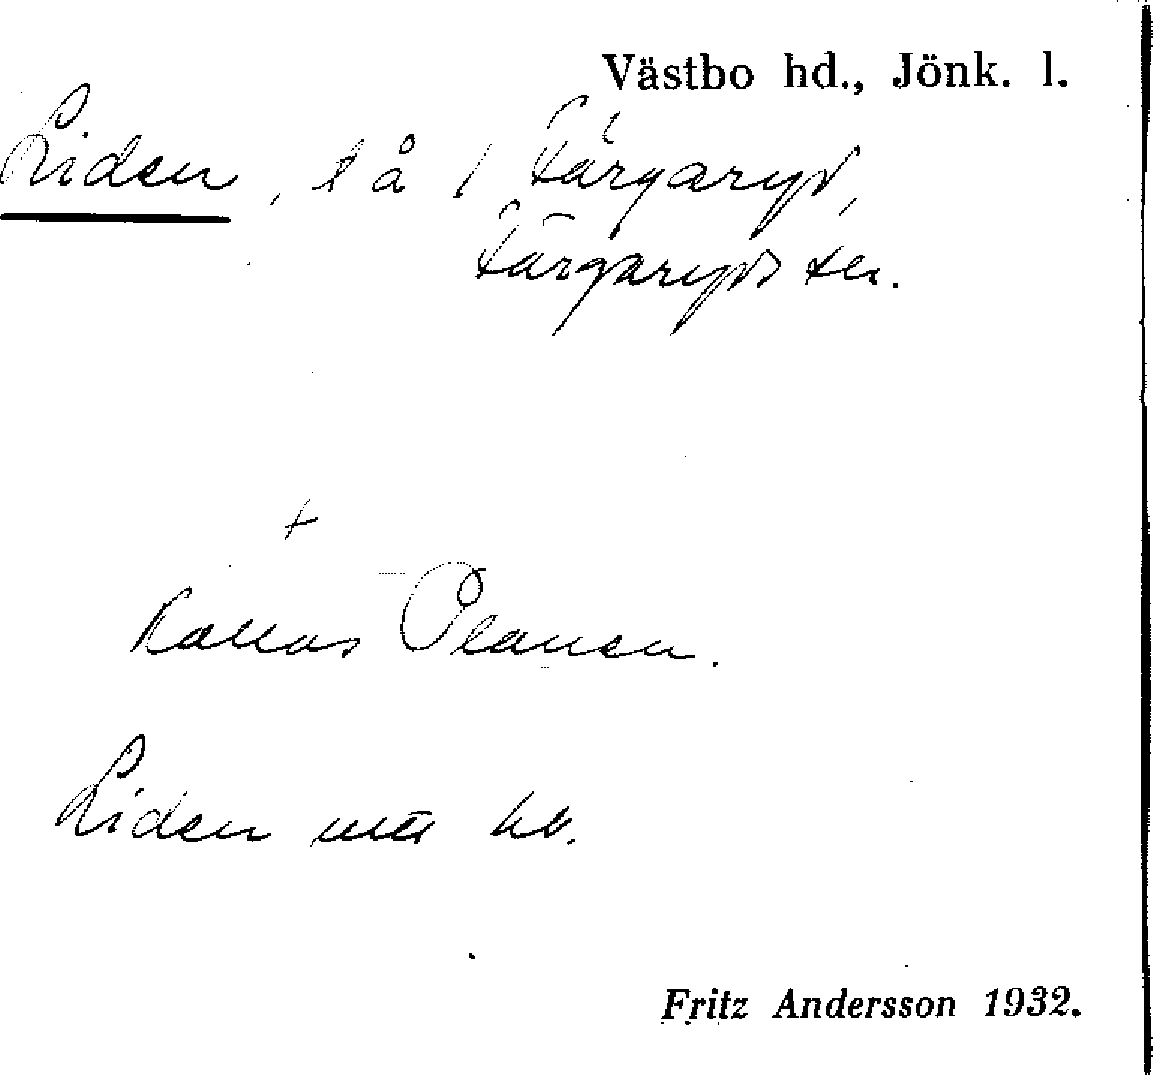 Västbo hd., Jönk. l.
Liden, t å 1 Färgaryd,
Färgaryds sn.
+
Kallas Planen.
Liden
Fritz Andersson 1932.